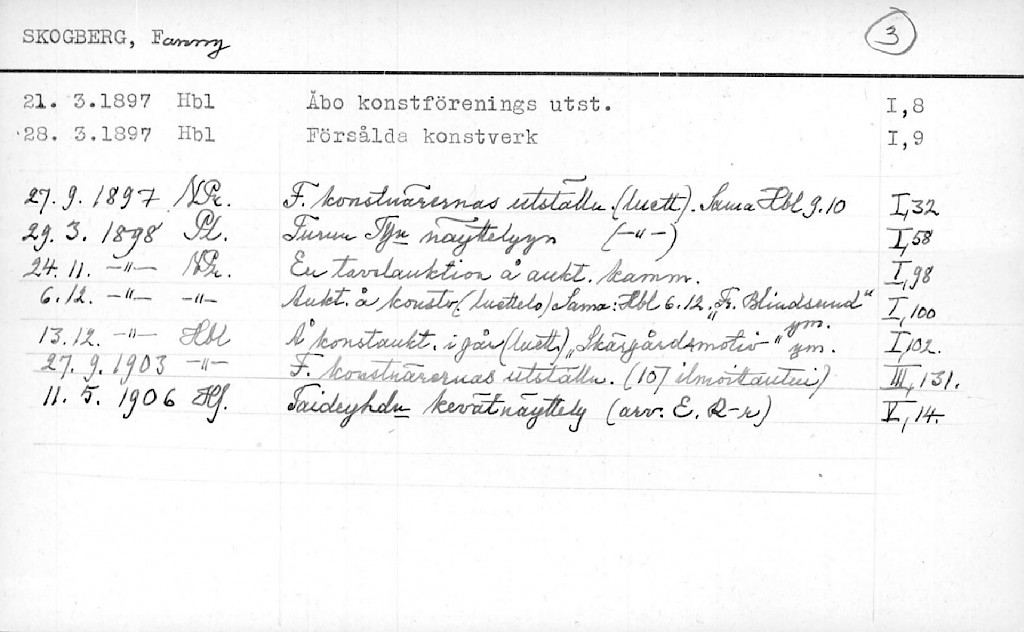 SKOGBERG, Fanny 3
21. 3.1897 Hbl Åbo konstförenings utst. I,8
28. 3.1897 Hbl Försålda konstverk I,9
27.9.1897 NPr. F. konstnärernas utställn. (luett). Sama Hbl 9.10 I,32
29.3.1898 Pl. Turun Tyn näyttelyyn (-"-) I,58
24.11. -"- NPr. En tavelauktion å aukt. kamm. I,98
6.12. -"- -"- Aukt. å konstv. (luettelo) Sama: Hbl 6.12. „Fr. Blindsund" ym. I,100
13.12. -"- Hbl Å konstaukt. i går (luett.) „Skärgårdsmotiv" ym. I,102.
27.9.1903 -"- F. konstnärernas utställn. (107 ilmoitautui) III,131.
11.5.1906 Hf. Taideyhdn kevätnäyttely (arv. E. R-r) V,14.